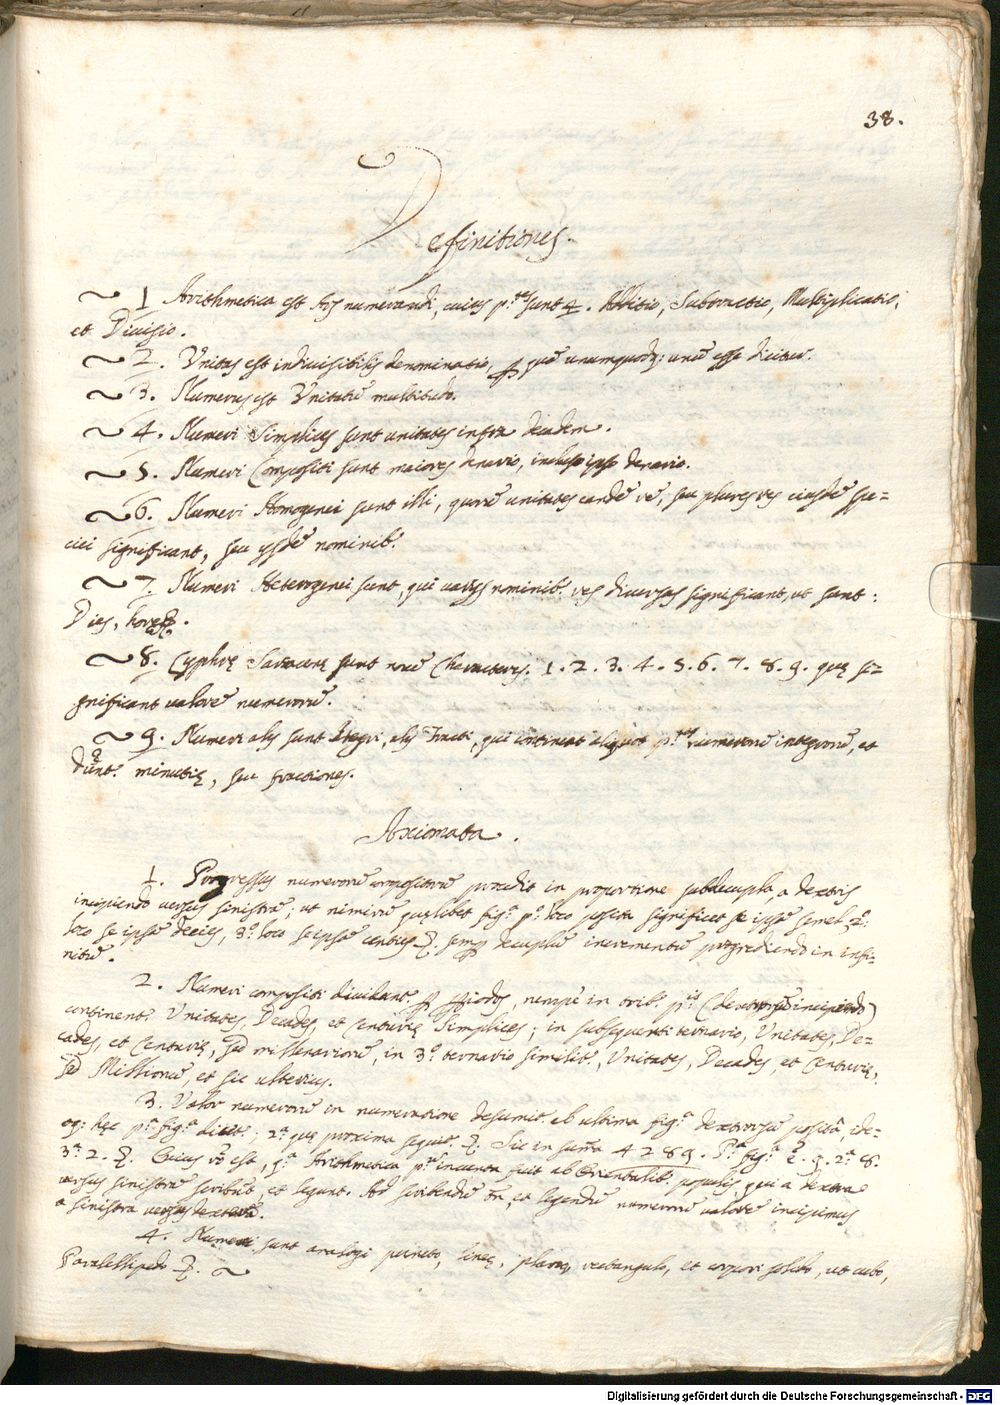 38.
Definitiones.
1 Arithmetica est Ars numerandi, cuius p.tes sunt 4. Additio, Subtractio, Multiplicatio,
et Divisio.
2. Unitas est indivisibilis denominatio, quã unumquodq; unũ esse dicitur.
3. Numerus est Unitatũ multitudo.
4. Numeri Simplices sunt unitates infra decadem.
5. Numeri Compositi sunt maiores denario, incluso ipso denario.
6. Numeri Homogenei sunt illi, quorũ unitates eandẽ rẽ, seu plures res eiusdẽ spe=
ciei significant, seu ysdẽ nominib.
7. Numeri Heterogenei sunt, qui varijs nominib. res diversas significant, ut sunt:
Dies, horę
8. Cyphrę Saracenę sunt novẽ Characteres. 1. 2. 3. 4. 5. 6. 7. 8. 9. quę si=
gnificant valorẽ numerorũ.
9. Numeri alij sunt Integri, alij Fracti, qui continent aliquot p.tes numerorũ integrorũ, et
minutię, seu fractiones.
Axiomata.
1. Progressus numerorũ compositorũ procedit in proportione subdecupla, a dextris
incipiendo versus sinistrã; ut nimirũ quęlibet fig.a p.o loco posita significet se ipsã semel, 2.o
loco se ipsã decies, 3.o loco se ipsã centies decuplũ incrementũ progrediendo in infi=
nitũ.
2. Numeri compositi dividunt. nempè in trib. p.is (dextrorsũ incipiendo)
continent. Unitates, Decades, et Centurię Simplices; in subsequenti ternario, Unitates, De=
cades, et Centurię, sed millenariorũ, in 3.o ternario similit. Unitates, Decades, et Centurię,
sed Millionũ, et sic ulterius.
3. Valor numerorũ in numeratione desumit. ab ultima fig.a dextrorsũ positã, ide=
oq; hęc p.a fig.a dicit.; 2.a quę proxima sequit. Sic in sum̃a 4289. P.a fig.a ẽ. 9. 2.a 8.
3.a 2. Cuius rõ est, q.a Arithmetica p.us inventa fuit ab Orientalib. populis, qui a dextra
versus sinistrã scribũt, et legunt. Ad scribendũ tñ, et legendũ numerorũ valorẽ incipimus
a sinistra versus dextrã.
4. Numeri sunt analogi puncto, linęę, plano, rectangulo, et corpori solido, ut cubo,
Paralellipedo
Digitalisierung gefördert durch die Deutsche Forschungsgemeinschaft - DFG